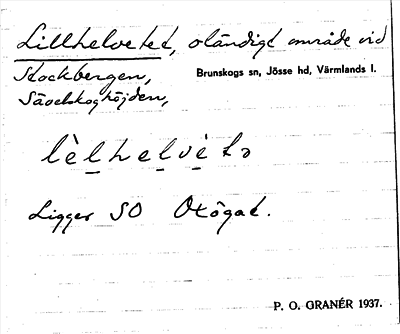 Lillhelvetet, oländigt område vid
Stockbergen,
Brunskogs sn, Jösse hd, Värmlands l.
lèlhelvètə
Ligger SO
P. O. GRANÉR 1937.